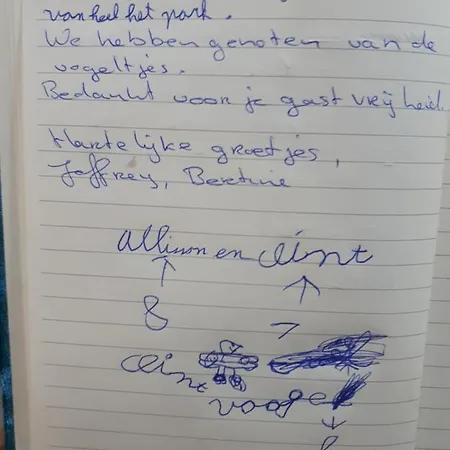 van heel het park.
We hebben genoten van de
vogeltjes.
Bedankt voor je gastvrijheid.
Hartelijke groetjes,
Joffrey, Bertine
allison en clint
8 7
clint
vogel